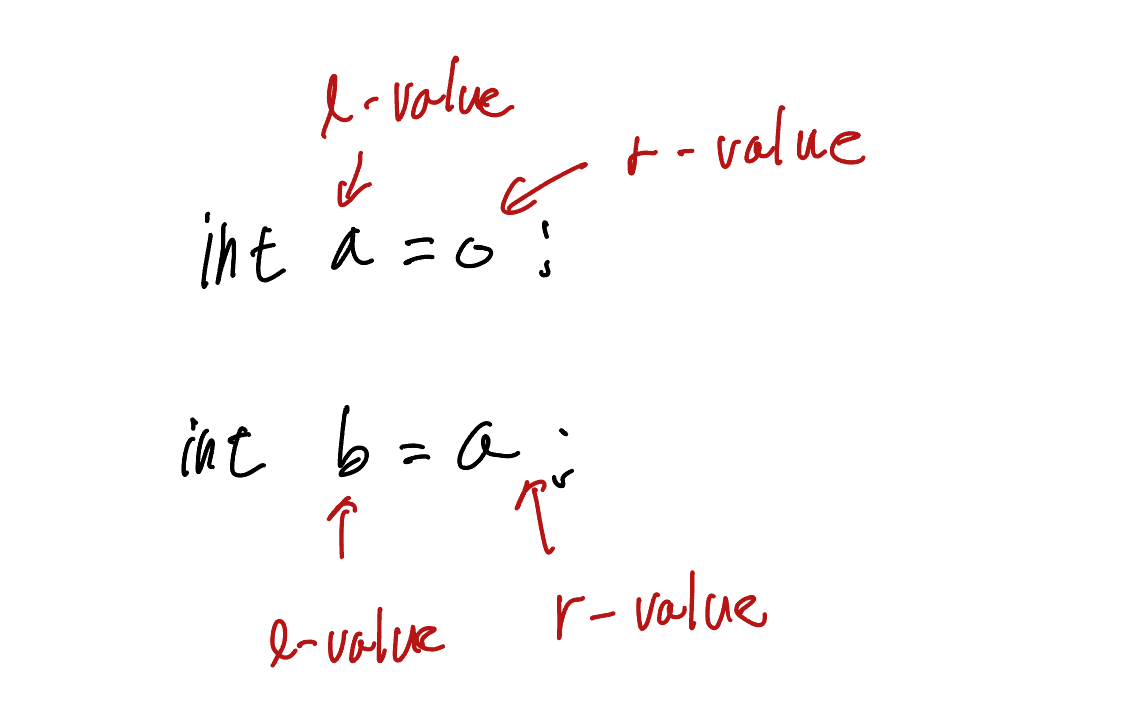 l-value
r-value
int a = 0 ;
int b = a ;
l-value
r-value